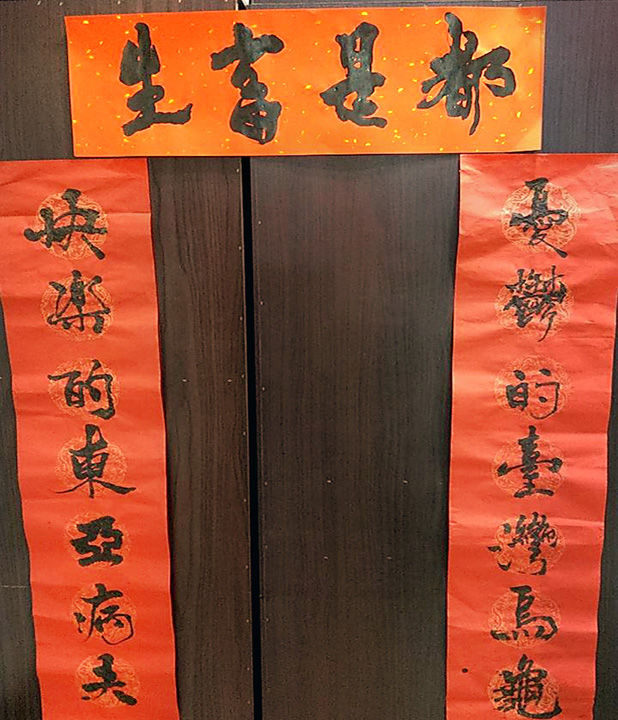 都是畜生
憂鬱的臺灣烏龜
快樂的東亞病夫